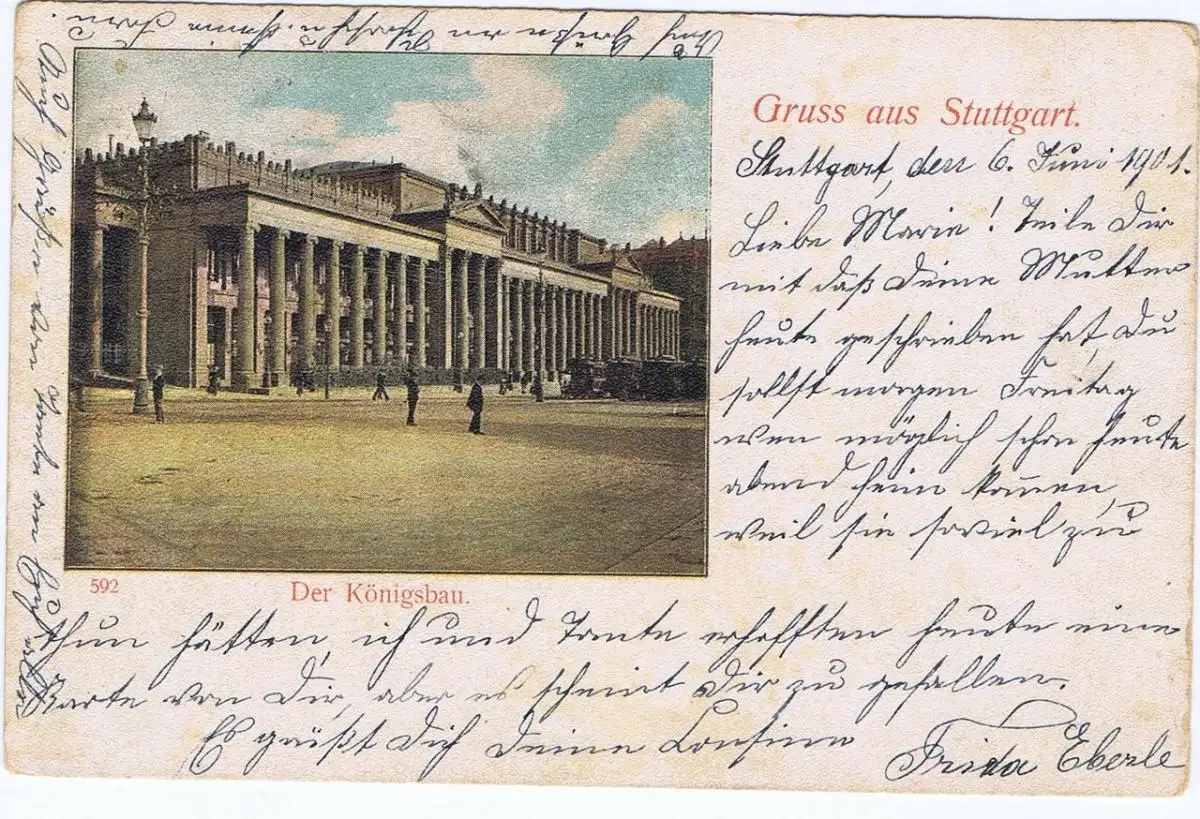 Gruss aus Stuttgart.
Stuttgart, den 6. Juni 1901.
Liebe Marie! Teile Dir
mit daß Deine Mutter
heute geschrieben hat, Du
sollst morgen Freitag
wen möglich schon heute
abend heim kommen,
weil sie soviel zu
592
Der Königsbau.
thun hätten, ich und Tante erhofften heute eine
Karte von Dir, aber es scheint Dir zu gefallen.
Es grüßt Dich Deine Cousine
Frida Eberle
Auch Grüße von